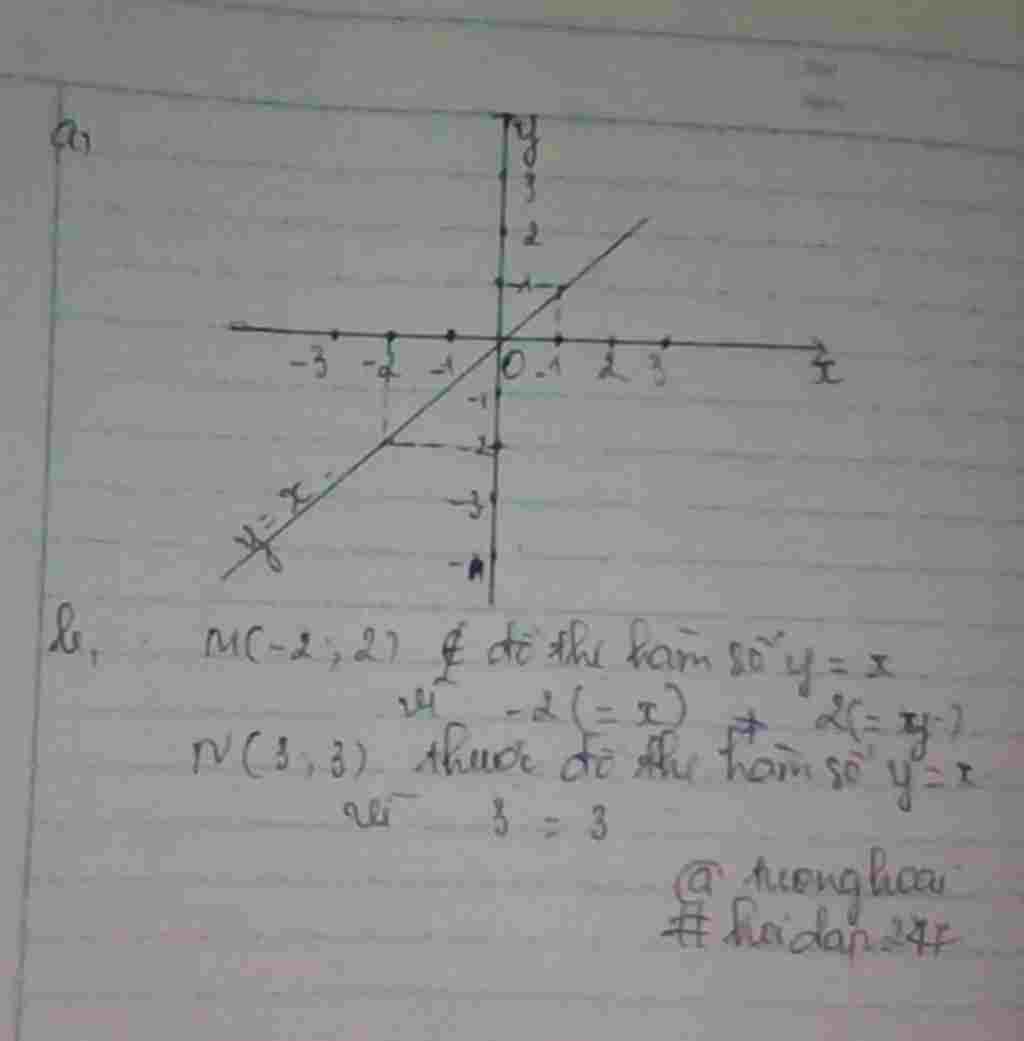 a,
y
3
2
1
-3 -2 -1 0 1 2 3 x
-1
-2
-3
y = x
b, M(-2; 2) ∉ đồ thị hàm số y = x
vì -2 (= x) ≠ 2 (= y)
N(3; 3) thuộc đồ thị hàm số y = x
vì 3 = 3
@ tuonghoai
# hoidap247